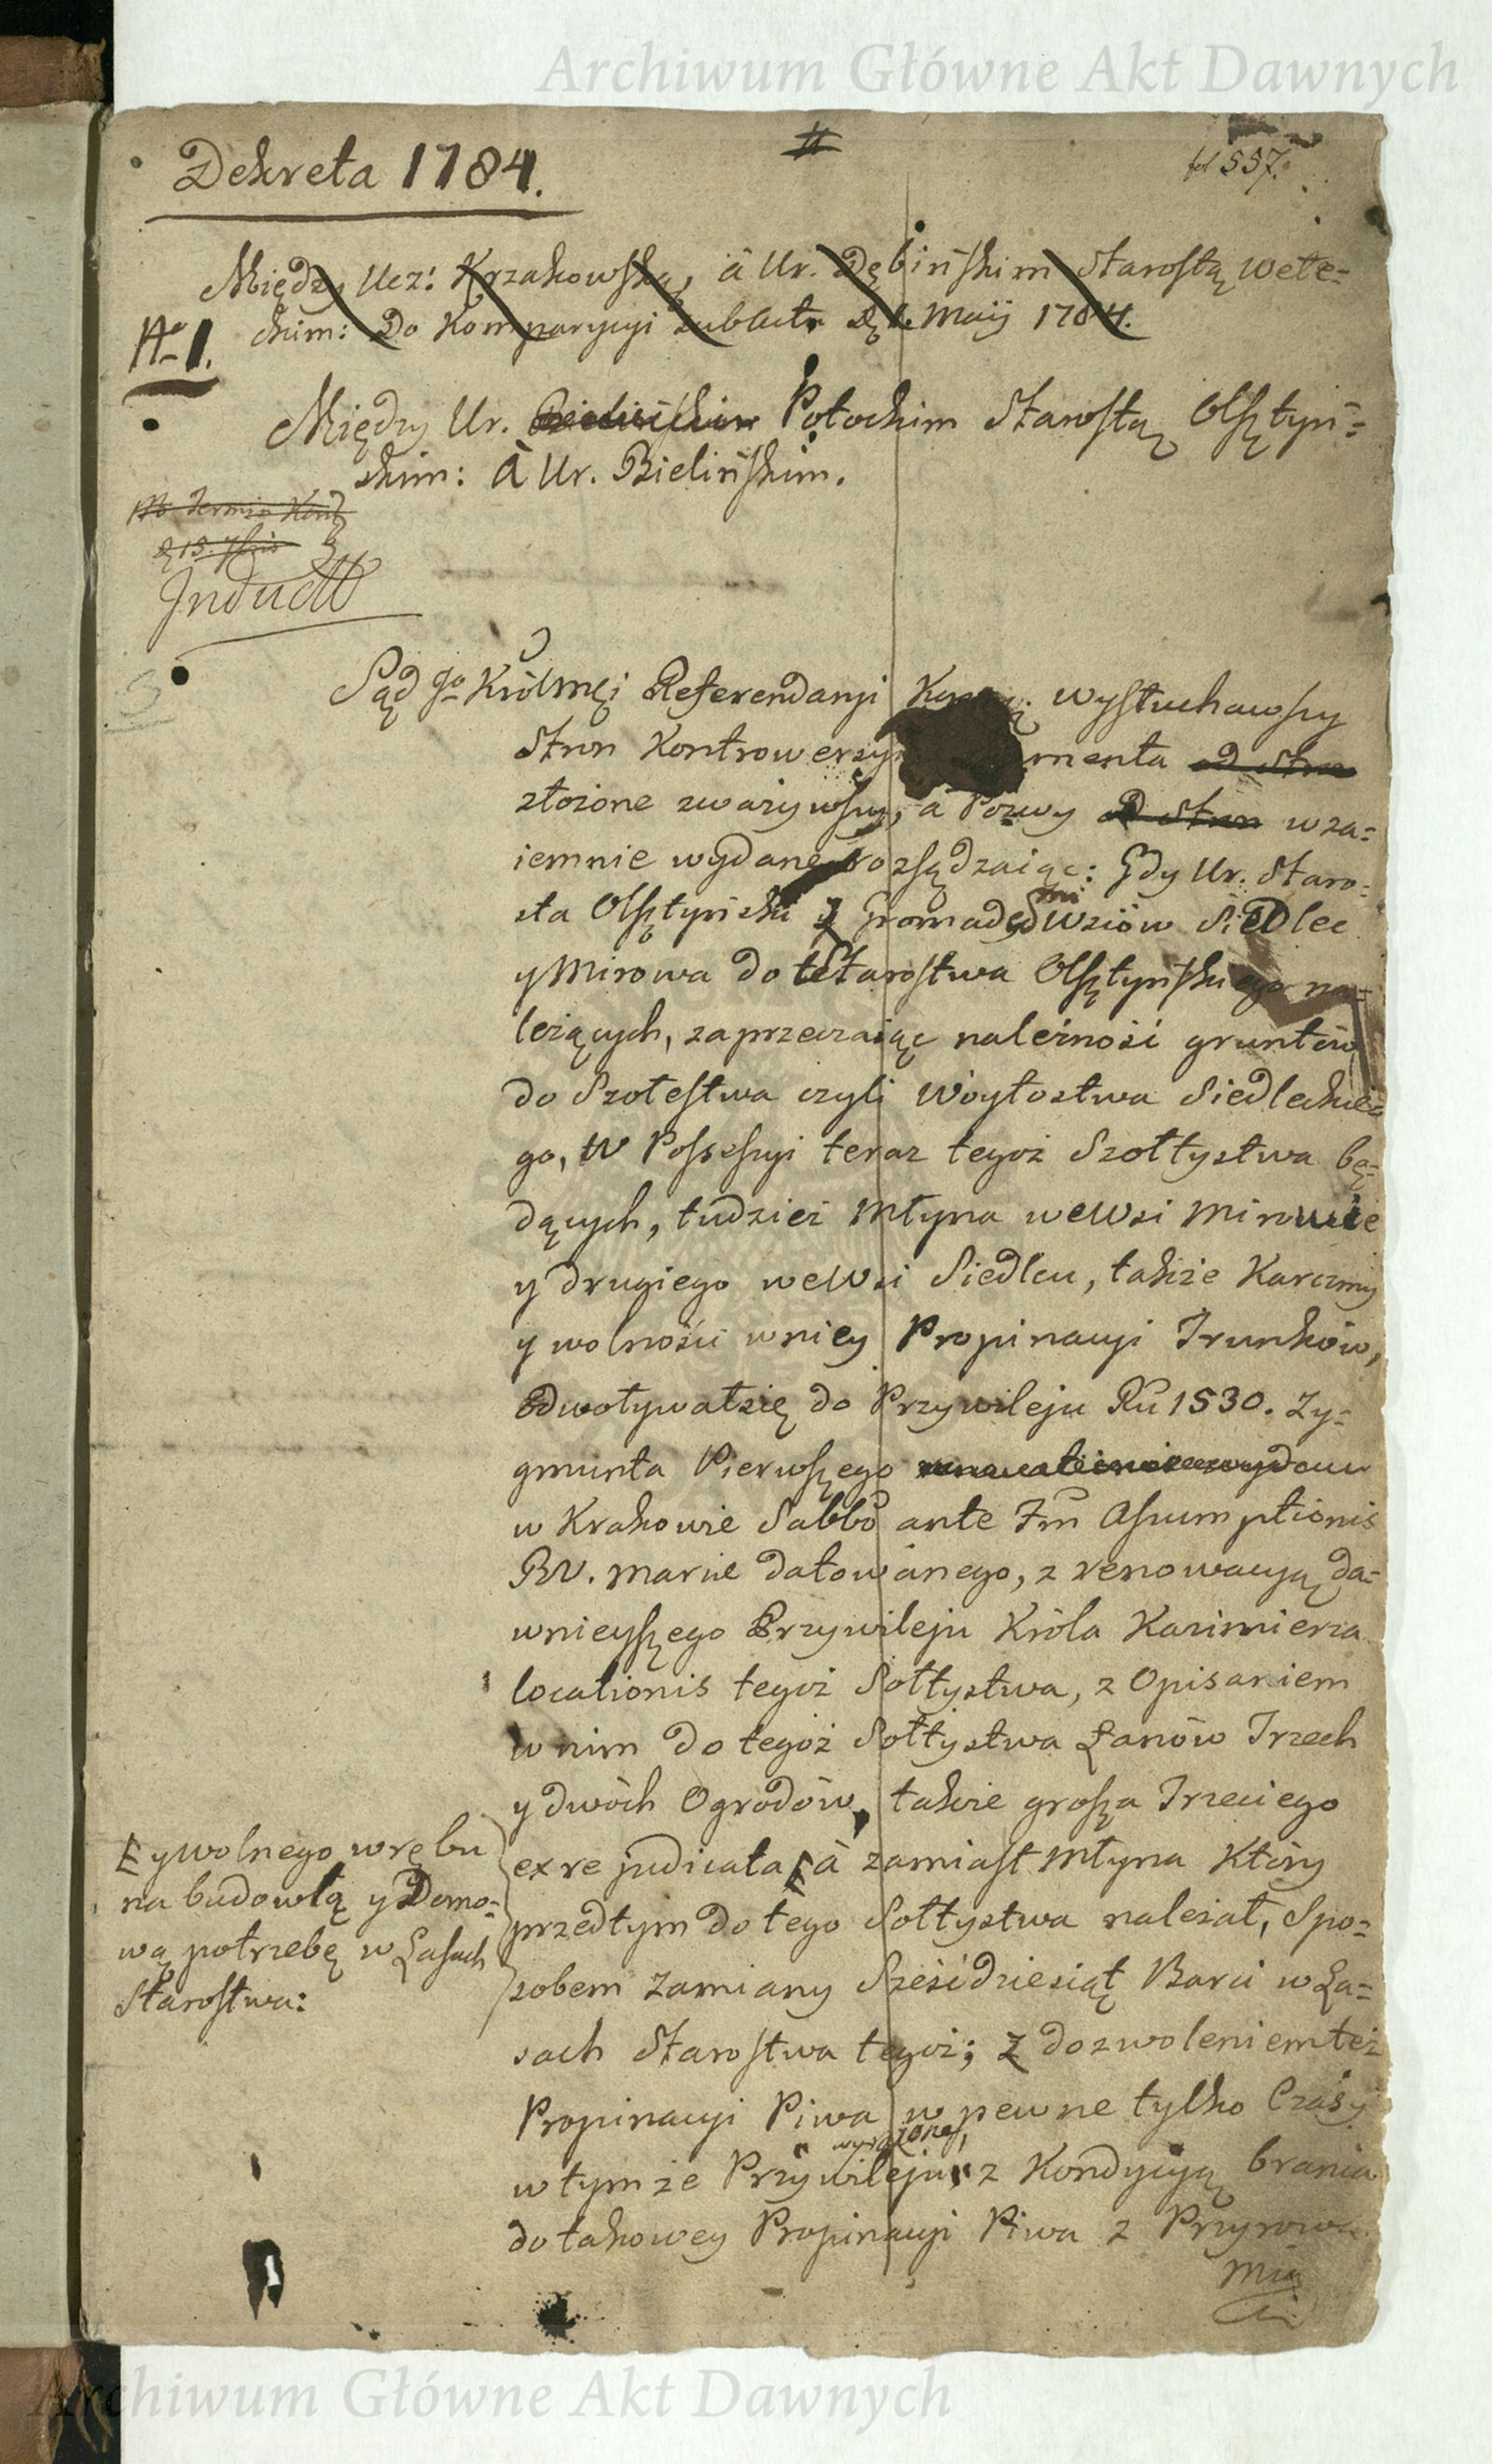 Archiwum Główne Akt Dawnych
Dekreta 1784.
#
fol 557.
Między Ucz: Krzakowską, à Ur. Dębińskim Starostą Wete-
ckim: Do Komparycyi Maij 1784.
No 1.
Między Ur. Potockim Starostą Olsztyń=
skim: à Ur. Bielińskim.
Induct
Sąd Jo KrólMci Referendaryi wysłuchawszy
Stron Kontrowersyi menta od Stron
złożone zważywszy, à Pozwy od Stron wza=
iemnie wydane rozsądzaiąc: Gdy Ur. Staro=
sta Olsztyński z Gromadami Wsiów Siedlec
y Mirowa do Starostwa Olsztyńskiego na=
leżących, zaprzeczaiąc należności gruntów
do Szołestwa czyli Woytostwa Siedleckie=
go, w Possessyi teraz tegoż Szołtystwa bę=
dących, tudzież Młyna weWsi Mirowie
y drugiego weWsi Siedlcu, także Karczmy
y wolności wniey Propinacyi Trunków,
odwoływał się do Przywileju Ru 1530. Zy=
gmunta Pierwszego
w Krakowie Sabbo ante Fm Assumptionis
BV. Marie datowanego, z renowacyą da=
wnieyszego Przywileju Króla Kazimierza
locationis tegoż Sołtystwa, z Opisaniem
w nim do tegoż Sołtystwa Łanów Trzech
y dwóch Ogrodów, także grosza Trzeciego
ex re judicata à zamiast Młyna Który
przedtym do tego Sołtystwa należał, Spo=
sobem zamiany Sześćdziesiąt Barci w La=
sach Starostwa tegoż; z dozwoleniem też
Propinacyi Piwa w pewne tylko Czasy
wyrażone,
w tymże Przywileju, z Kondycyą brania
do takowey Propinacyi Piwa z Przyrowa
Mia
y wolnego wrębu
na budowlą y Domo=
wą potrzebę w Lasach
Starostwa:
Archiwum Główne Akt Dawnych